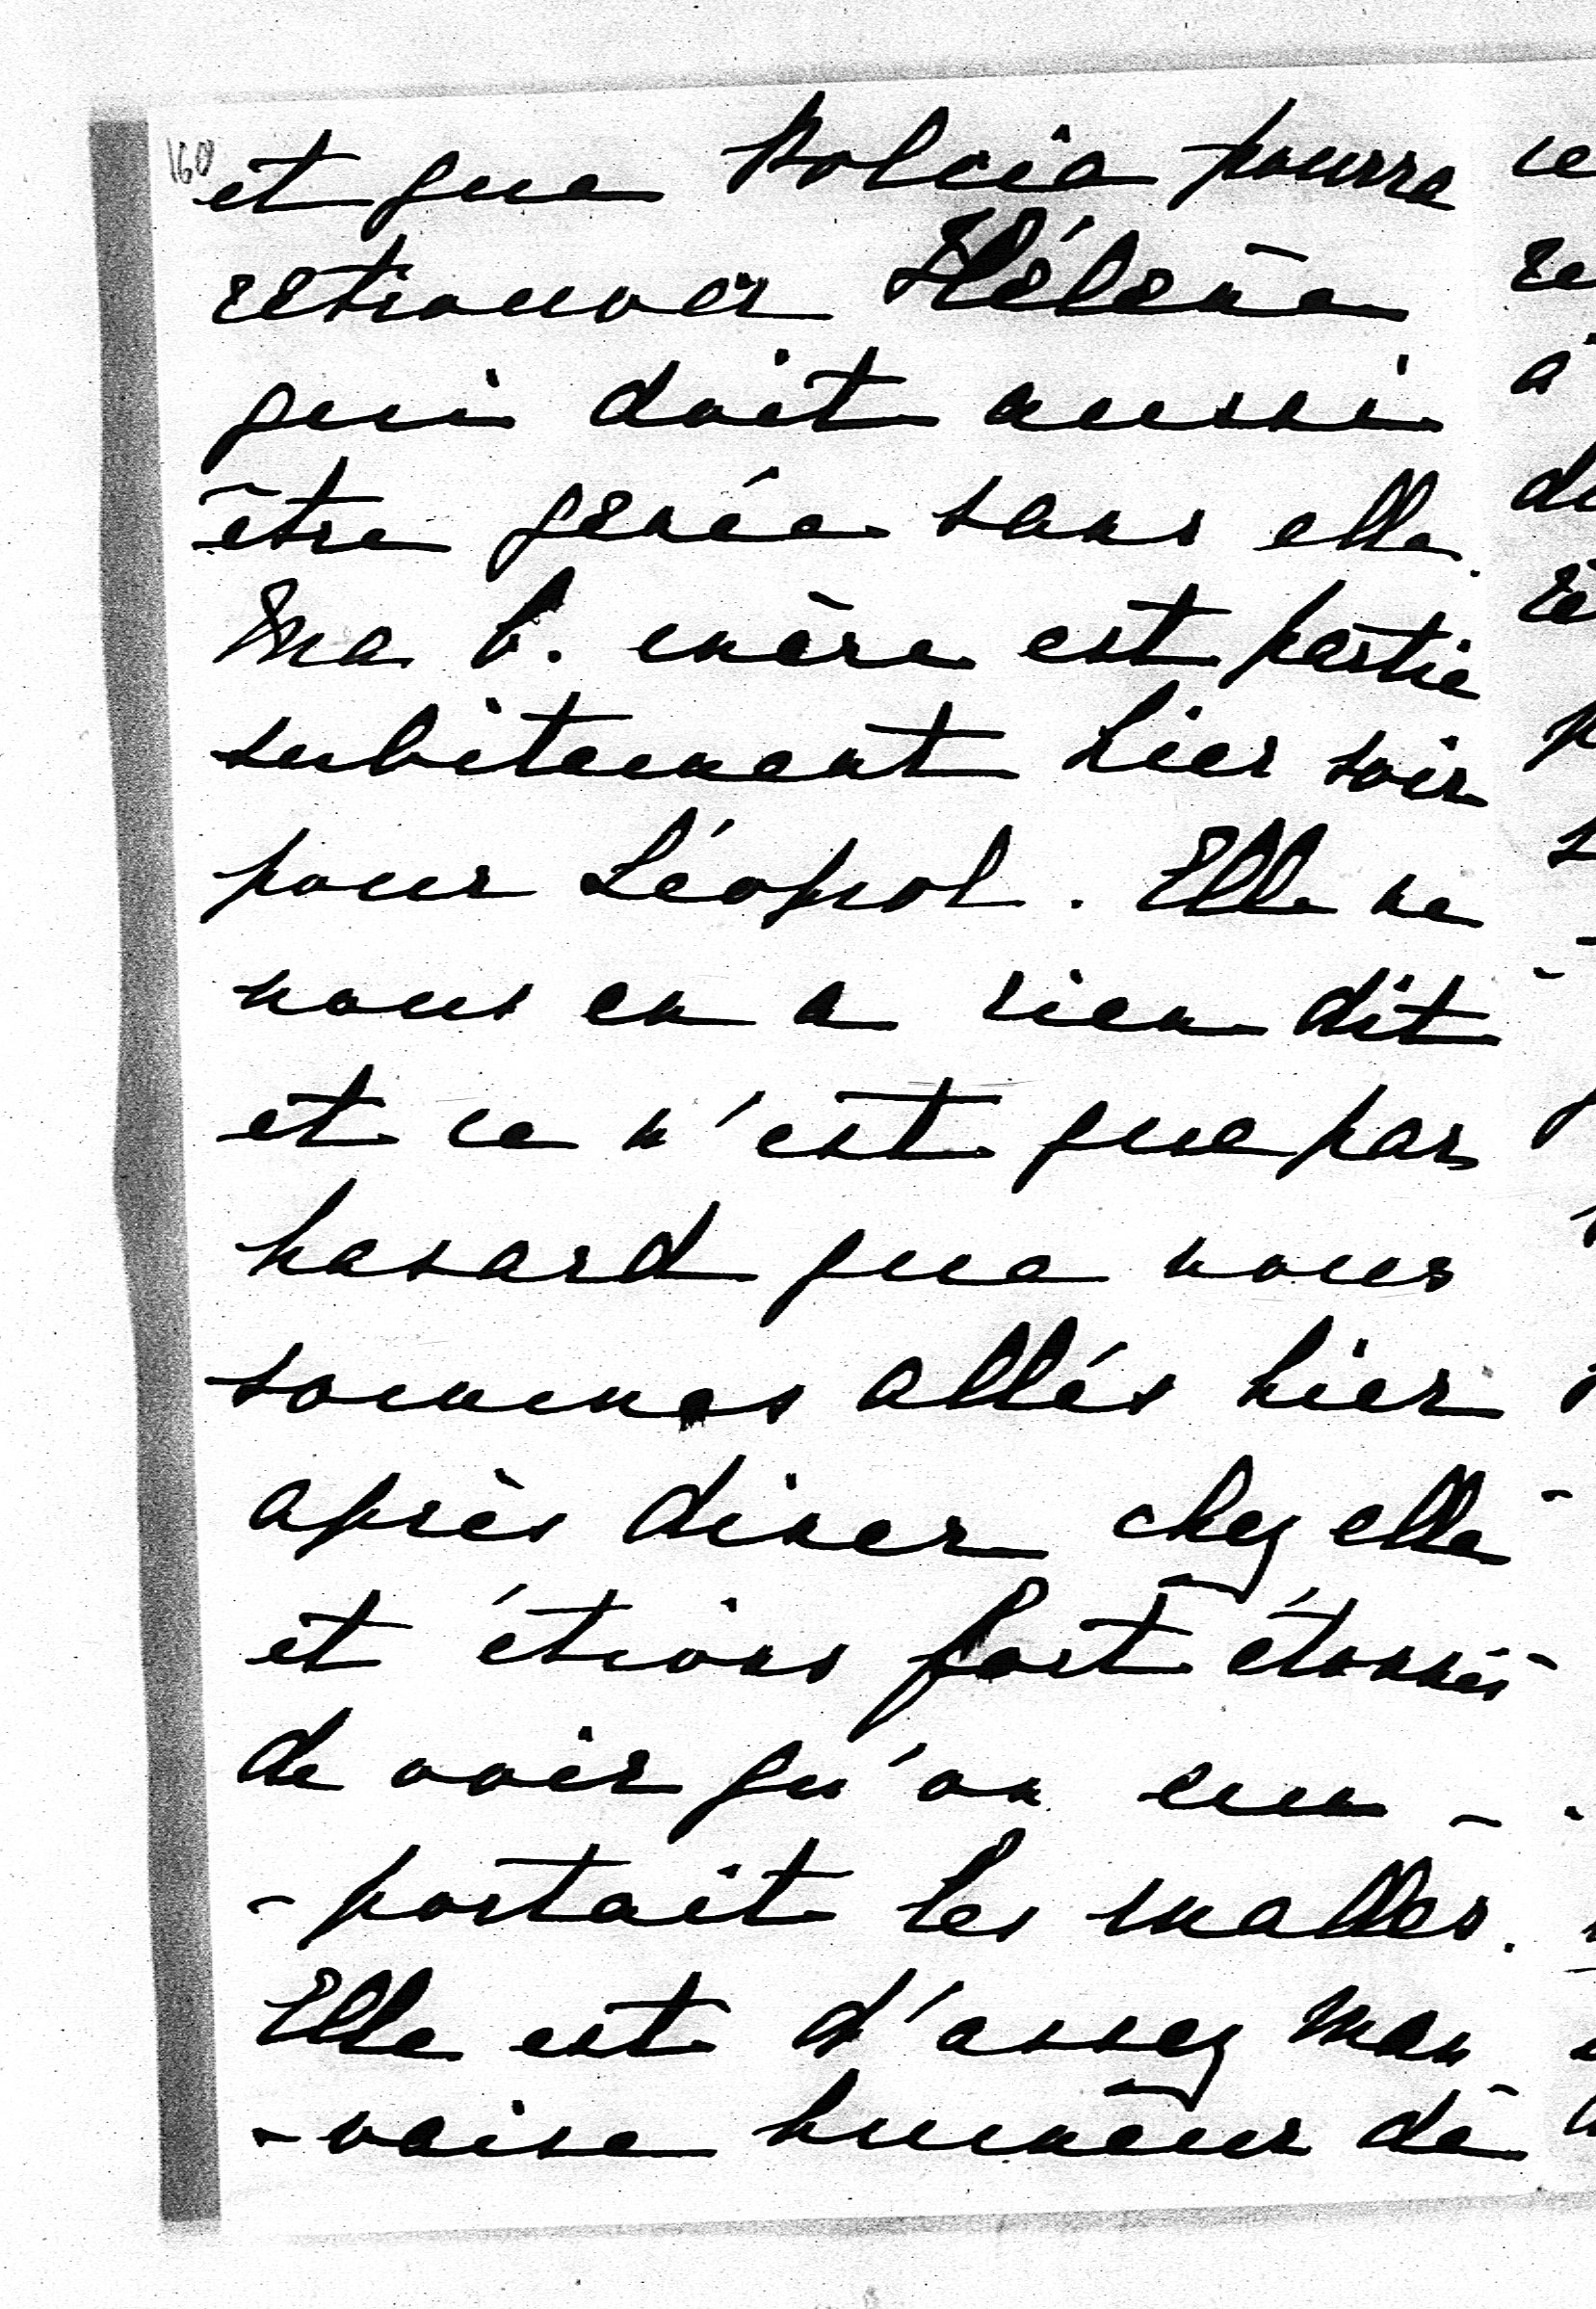 160
et que Polcia pourra
retrouver Hélène
qui doit aussi
être gênée sans elle.
Ma b. mère est partie
subitement hier soir
pour Léopol. Elle ne
nous en a rien dit
et ce n'est que par
hasard que nous
sommes allés hier
après diner chez elle
et étions fort étonnés
de voir qu'on em-
-portait les malles.
Elle est d'assez mau
-vaise humeur de